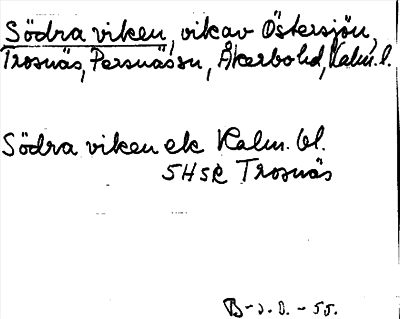 Södra viken, vik av Östersjön,
Trosnäs, Persnäs sn, Åkerbo hd, Kalm. l.
Södra viken ek Kalm. bl.
5H5R Trosnäs